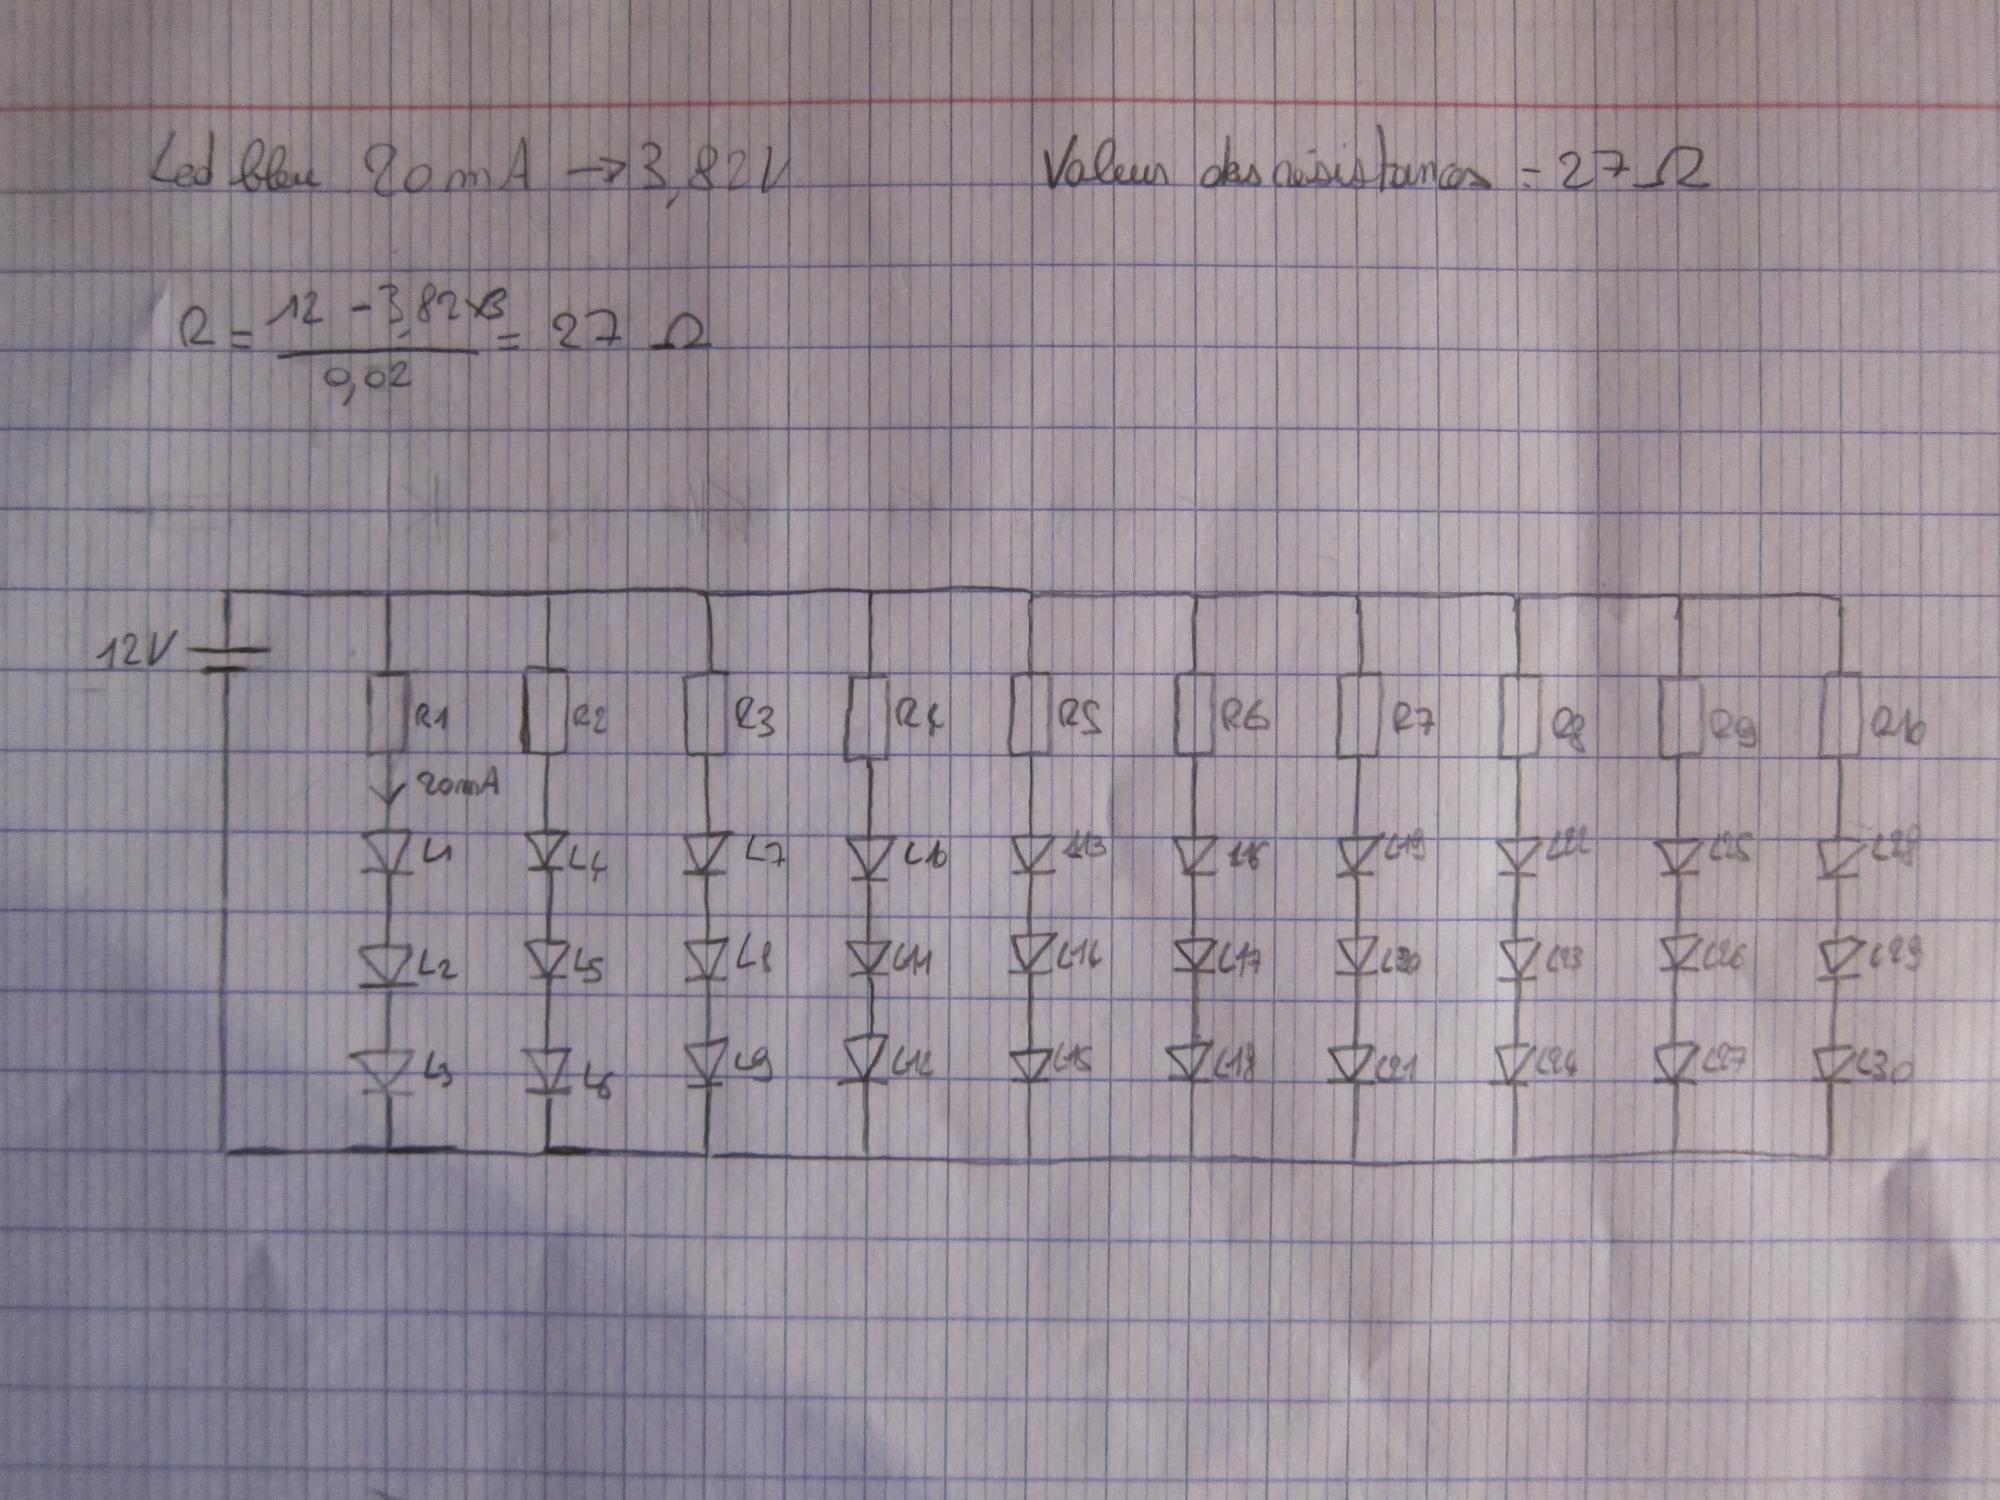 Led bleu 20mA → 3,82V
Valeur des résistances = 27 Ω
R = 12 - 3,82x3 / 0,02 = 27 Ω
12V
R1 R2 R3 R4 R5 R6 R7 R8 R9 R10
20mA
L1 L4 L7 L10 L13 L16 L19 L22 L25 L28
L2 L5 L8 L11 L14 L17 L20 L23 L26 L29
L3 L6 L9 L12 L15 L18 L21 L24 L27 L30